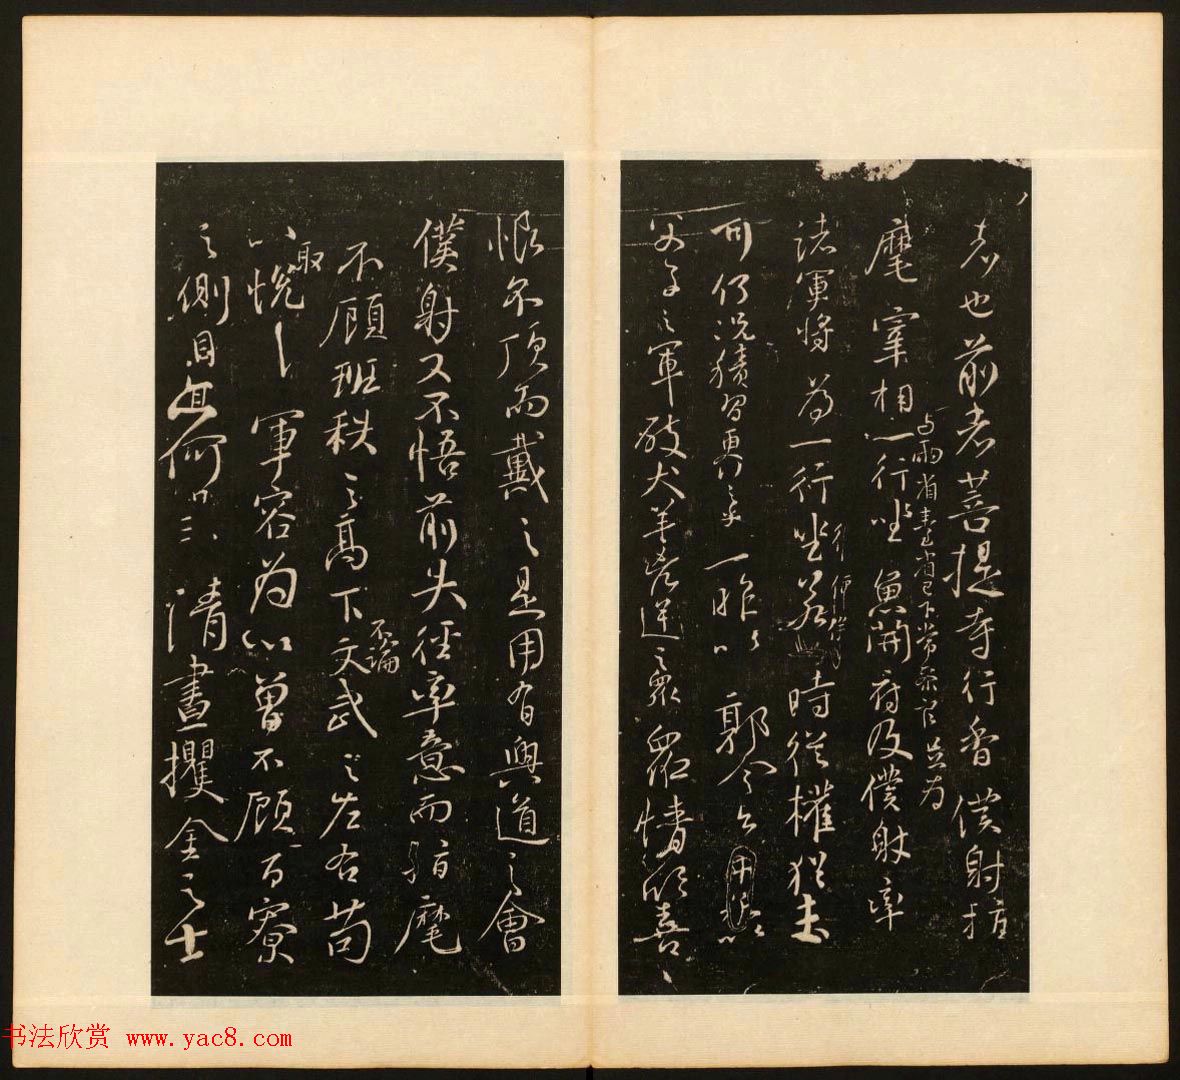 者也前者菩提寺行香僕射指
麾宰相与兩省臺省已下常參官並為一行坐魚開府及僕射率
諸軍將為一行坐若一時從權猶未
可何況積習更行之乎一昨以郭令公以
父子之軍破犬羊兇逆之眾眾情欣喜
恨不頂而戴之是用有興道之會
僕射又不悟前失徑率意而指麾
不顧班秩之高下不論文武之左右苟
以取悅軍容為心曾不顧百寮
之側目亦何異清晝攫金之士
书法欣赏 www.yac8.com